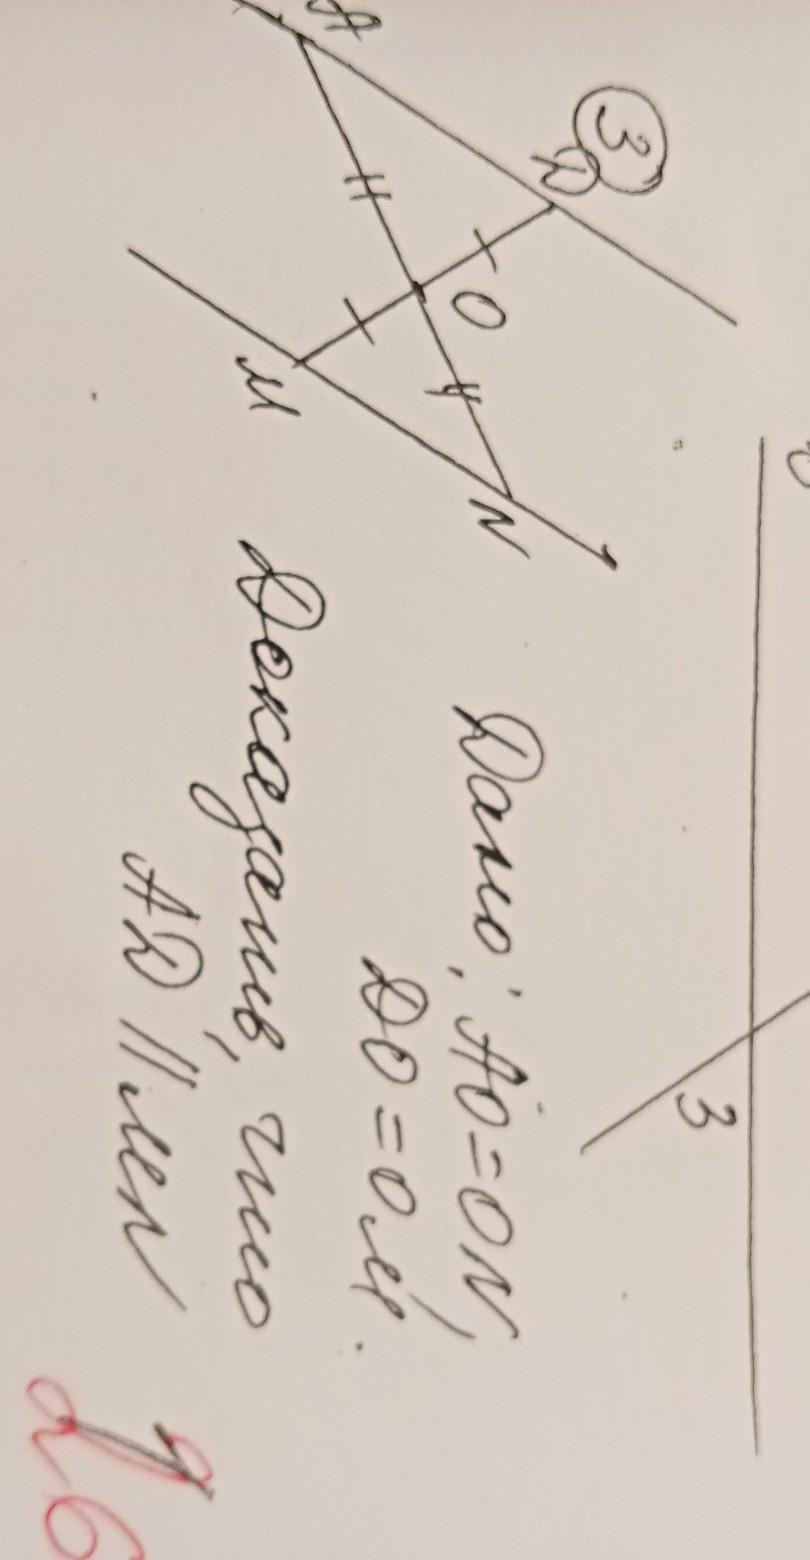 3
A
D
O
M
N
Дано: AO=ON,
DO=OM.
Доказать, что
AD || MN
3
26